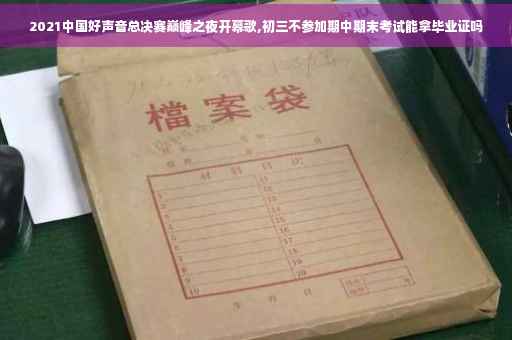 2021中国好声音总决赛巅峰之夜开幕歌,初三不参加期中期末考试能拿毕业证吗
檔案袋
材料目次
1 11
2 12
3 13
4 14
5 15
6 16
7 17
8 18
9 19
10 20
年 月 日